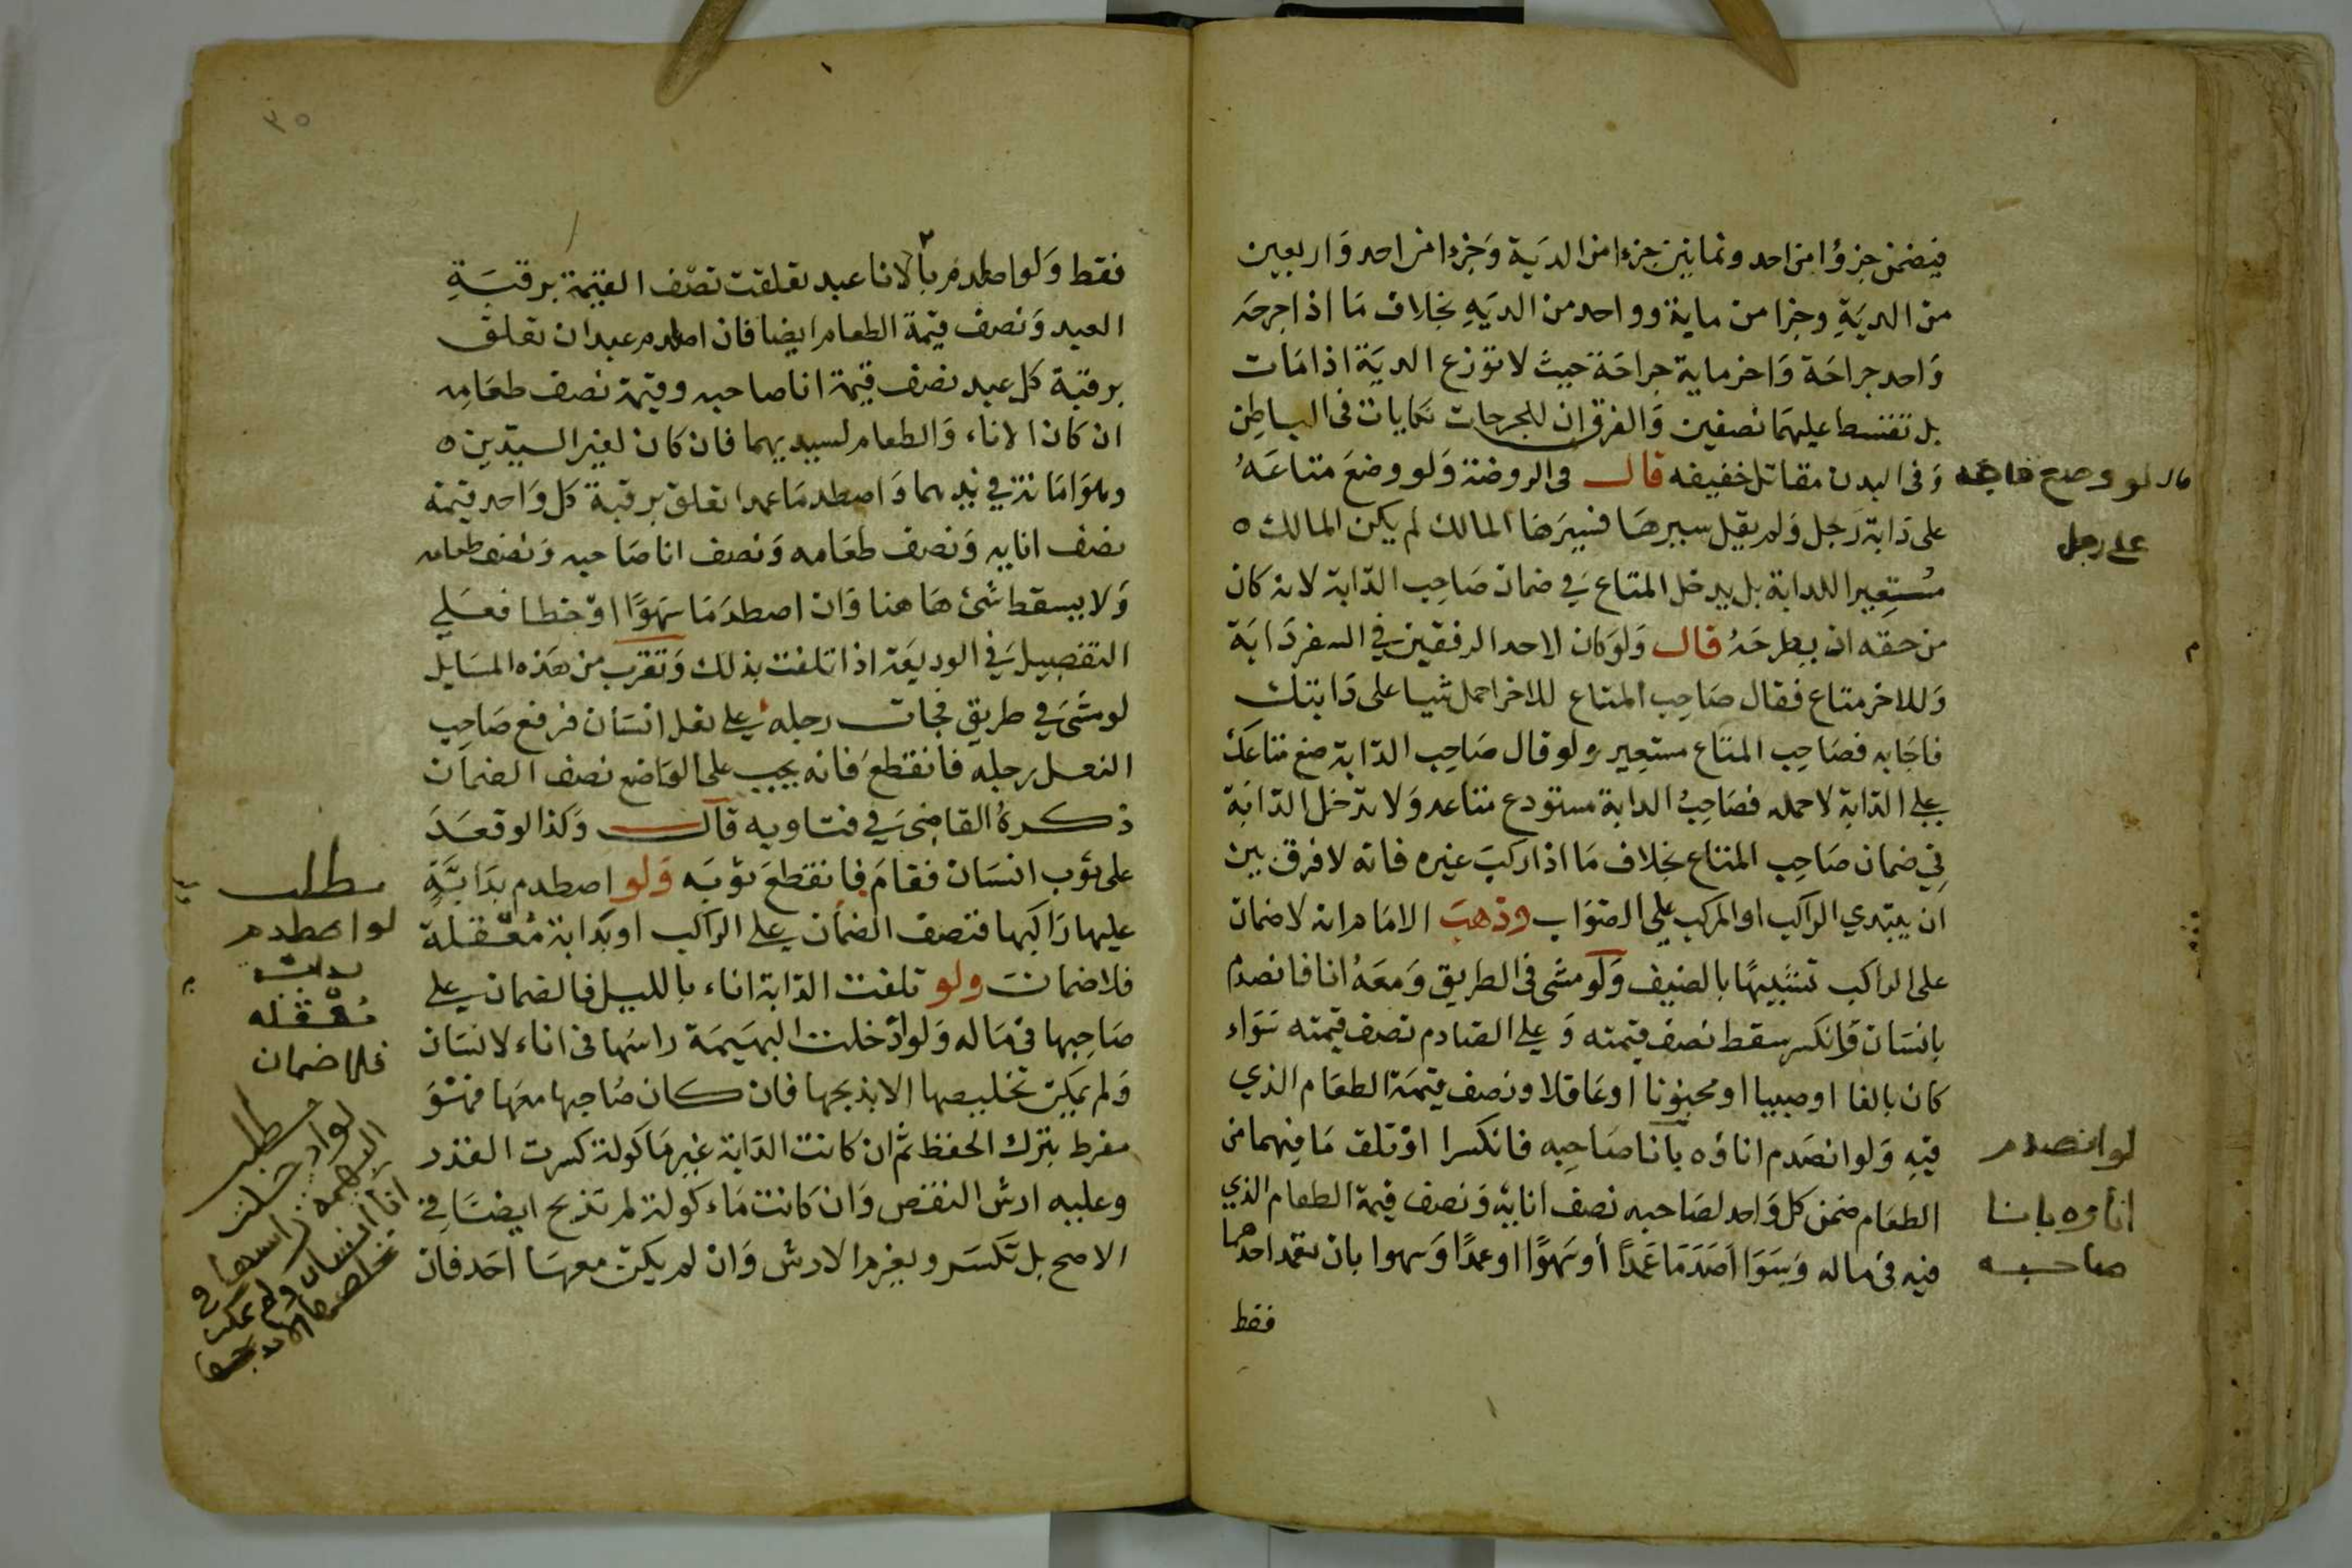 فيضمن جزؤا من احد وثمانين جزءا من الديَة وَجزءا من احد وَاربعين
من الديَةِ وجزا من ماية وواحد من الديَهِ بخلاف مَا اذا جرحَه
وَاحد جراحَة وَاخر ماية جراحَة حيث لا توزع الديَة اذا مَات
بل تقسط عليهمَا نصفين وَالفرق ان للجرحات نكايات فى الباطِن
وَفى البدن مقاتل خفيفه قال فى الروضة وَلو وضعَ متاعَهُ
على دَابة رَجل وَلم يقل سيرهَا فسيرَهَا المالك لم يكن المالك ٥
مُستعِيرا للدابة بل يدخل المتاع فِي ضمان صَاحِب الدّابة لانه كان
من حقه ان يطرحَهُ قال وَلو كان لاحد الرفقين فِي السفر دَابَة
وَللاخر متاع فقال صَاحِب المتاع للاخر احمل شيا على دَابتك
فاجَابه فصَاحِب المتَاع مستعِير ولو قال صَاحِب الدّابة ضع متاعَك
علي الدّابة لاحمله فصَاحِبُ الدابة مستودع متاعه وَلا تدخل الدّابَة
فِي ضمان صَاحِب المتاع بخلاف مَا اذا ركبَ غيره فانه لا فرق بين
ان يبتدي الراكب او المركب علي الصَوَاب وَذهبَ الامَام انه لا ضمان
على الراكب تشبيهًا بالضيف وَلو مشى فى الطريق وَمعَهُ انا فانصدم
بانسَان فَانكسر سقط نصف قيمته وَعلي الصَادم نصف قيمته سَوَاء
كان بالغا او صبيا او مجنونا اوعَاقلا ونصف قيمَة الطعَام الذي
فيهِ وَلو انصَدم اناؤه بانا صَاحِبه فانكسرا اوْ تلف مَا فيهما من
الطعَام ضمن كل وَاحد لصَاحبه نصف انايهِ وَنصف قيمة الطعام الذي
فيه فى ماله وَسَوَا اصَدَمَا عَمدًا أو سَهوًا او عمدًا وَسهوا بان تعمد احدهما
فقط
لو وضع متاعه
على رجل
لو انصدم
اناوه بانا
صاحبه
٣٥
فقط وَلو اصطدم بالانا عبد تعلقت نصْف القيمة برقبَةِ
العبد وَنصف قيمة الطعام ايضا فان اصطدم عبدان تعلق
برقبة كل عبد نصف قيمة انا صاحبه وقيمة نصف طعَامِه
ان كان الاناء وَالطعام لسيديهما فان كان لغير السيّدين ٥
وهوَ امَانة في يديهما وَاصطدمَا عمدا تعلق برقبة كل وَاحد قيمة
نصف انايه وَنصف طعَامه وَنصف انا صَاحبه وَنصف طعامه
وَلا يسقط شئ هَاهنا وَان اصطدَمَا سَهوًا اوْ خطا فعَلي
التفصيل فَي الوديعَة اذا تلفت بذلك وَتقرب من هَذه المسَايل
لو مشَى في طريق فجات رجله علي نعل انسَان فرفع صَاحِب
النعل رجله فانقطعَ فانه يجب على الوَاضع نصف الضمَان
ذكرهُ القاضِي في فتاويه قال وَكذا لو قعَدَ
على ثوب انسَان فقامَ فانقطعَ ثوبَه وَلو اصطدم بدَابَّةٍ
عليها رَاكبها فنصف الضمَان علي الراكب او بدَابة مُعَقلة
فلا ضمانَ ولو تلفت الدّابة اناء بالليل فالضمان علي
صَاحِبها فى مَاله وَلو ادْخلت البهَيمَة راسَها فى اناء لانسَان
وَلم يمكن تخليصها الا بذبحها فان كان صَاحِبها معَها فهْوَ
مفرط بترك الحفظ ثم ان كانت الدّابة غير مَاكولة كسرت القدر
وعليه ارش النقص وَان كانت مَاءكولة لم تذبح ايضًا فِي
الاصح بل تكسَر ويغرم الارش وَان لم يكن معهَا احَد فان
مطلب
لو اصطدم
بدابة
مُعقله
فلا ضمان
مطلب
لو ادخلت
البهيمه راسها فى
انا انسان ولم يمكن
تخلصها الا بذبحها